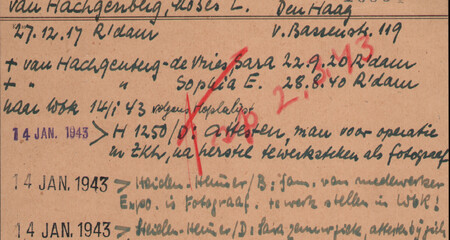 van Hachgenberg, Moses L. Den Haag
27.12.17 R'dam v. Bassenstr. 119
+ van Hachgenberg-de Vries Sara 22.9.20 R'dam
+ " " Sophia E. 28.8.40 R'dam
naar Wbk 14/1 43 volgens loplalijst
14 JAN. 1943 > H 1250/D: attesten, man voor operatie
in Zkh, na herstel tewerkstellen als fotograaf
14 JAN. 1943 > Heiden-Heimer/B: fam. van medewerker
Expo. is Fotograaf. te werk stellen in Wbk!
14 JAN. 1943 > Heiden-Heimer/D: Sara attesten bij zich